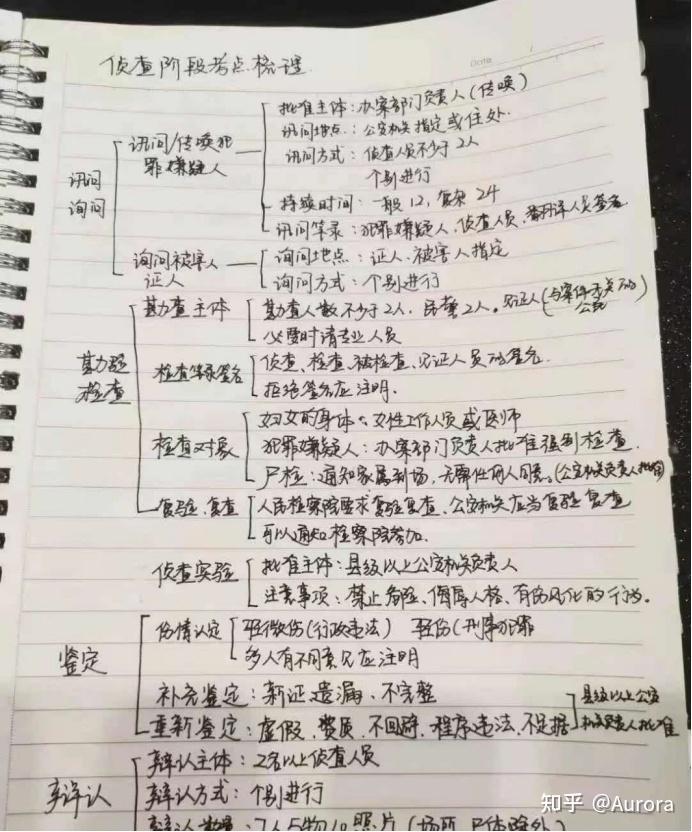 侦查阶段考点梳理
Date
讯问
询问
讯问/传唤犯
罪嫌疑人
批准主体：办案部门负责人（传唤）
讯问地点：公安机关指定或住处.
讯问方式：侦查人员不少于2人
个别进行
持续时间：一般12，复杂24
讯问笔录：犯罪嫌疑人，侦查人员，翻译人员签名
询问被害人
证人
询问地点：证人、被害人指定
询问方式：个别进行
勘验
检查
勘查主体
勘查人数不少于2人，民警2人。见证人（与案件无关的
公民）
必要时请专业人员
检查笔录签名
侦查、检查、被检查、见证人员的签名
拒绝签名应注明.
检查对象
妇女的身体：女性工作人员或医师
犯罪嫌疑人：办案部门负责人批准强制检查.
尸检：通知家属到场，无需任何人同意。(公安机关负责人批准)
复验、复查
人民检察院要求复验复查，公安机关应当复验复查
可以通知检察院参加.
侦查实验
批准主体：县级以上公安机关负责人
注意事项：禁止危险、侮辱人格、有伤风化的行为。
鉴定
伤情认定
轻微伤(行政违法) 轻伤(刑事犯罪
多人有不同意见应注明
补充鉴定：新证 遗漏、不完整
重新鉴定：虚假、资质、不回避、程序违法、不足据
县级以上公安
机关负责人批准
辩认
辩认主体：2名以上侦查人员
辩认方式：个别进行
辩认数量：7人5物10照片（场所、尸体除外）
知乎 @Aurora